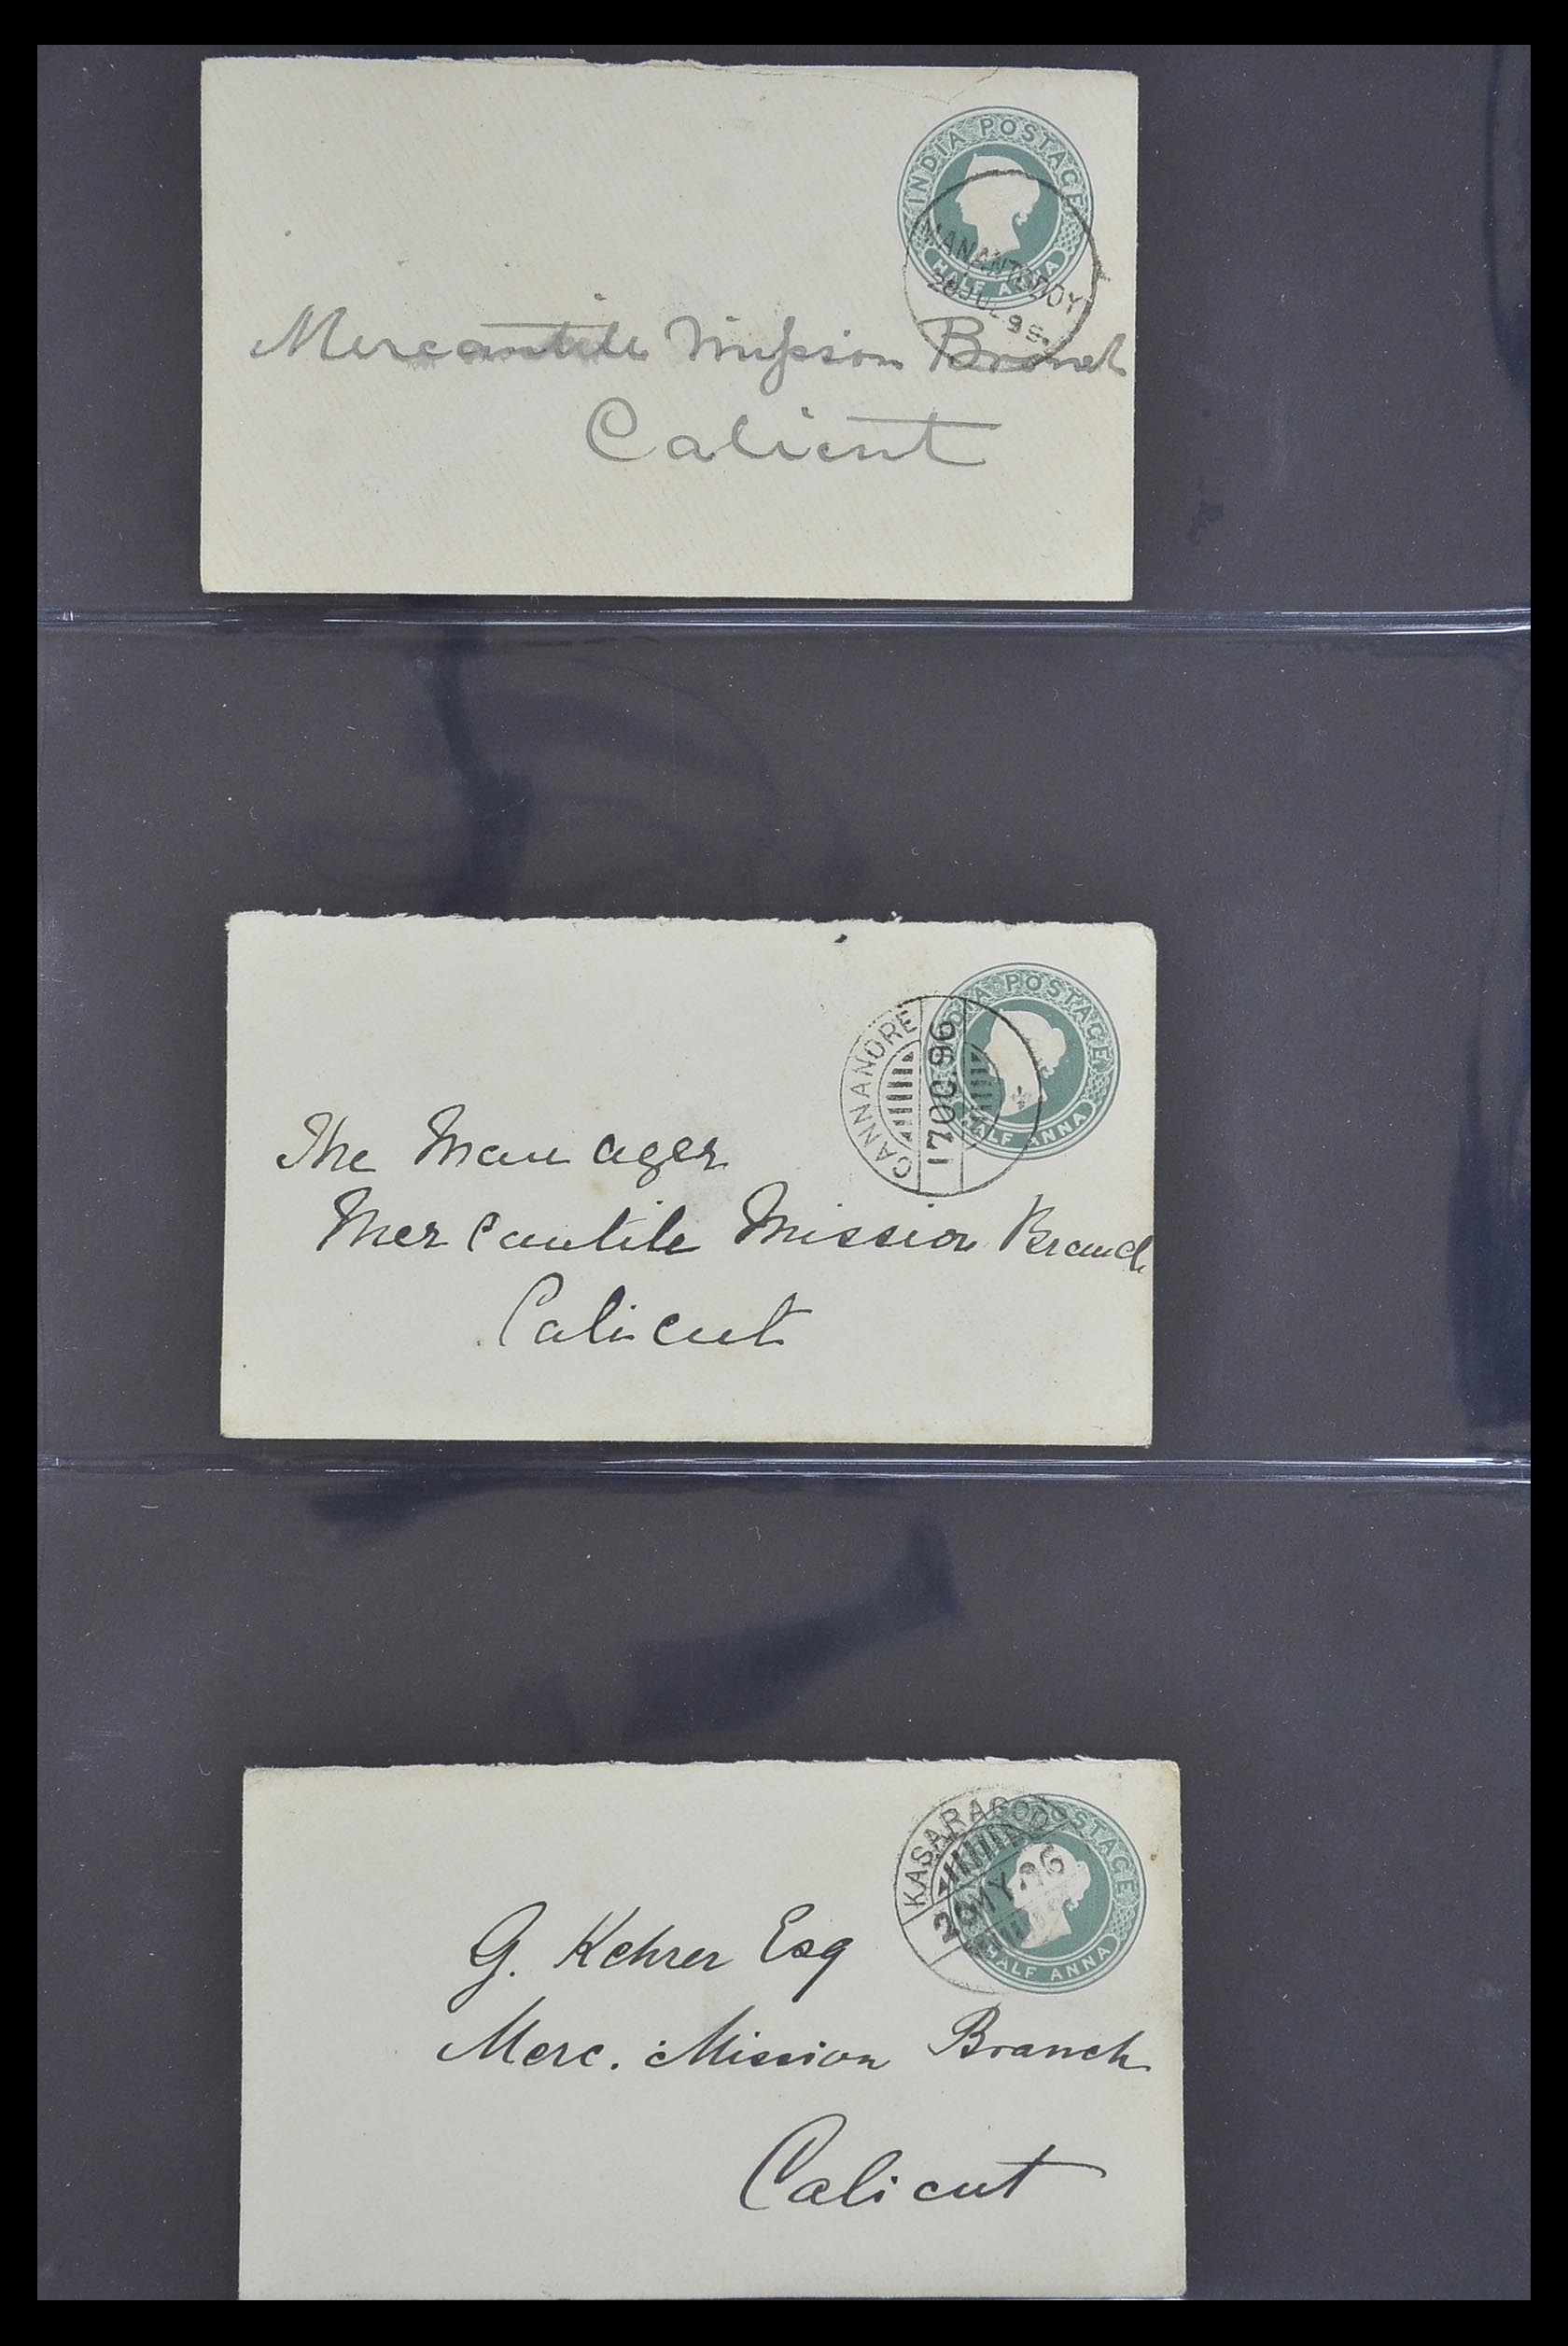 INDIA POSTAGE
HALF ANNA
MANANTODDY
Mercantile Mission Branch
Calicut
INDIA POSTAGE
HALF ANNA
CANNANORE
17 OC. 96
The Manager
Mercantile Mission Branch
Calicut
POSTAGE
HALF ANNA
KASARAGOD
MY. 96
G. Kehrer Esq
Merc. Mission Branch
Calicut